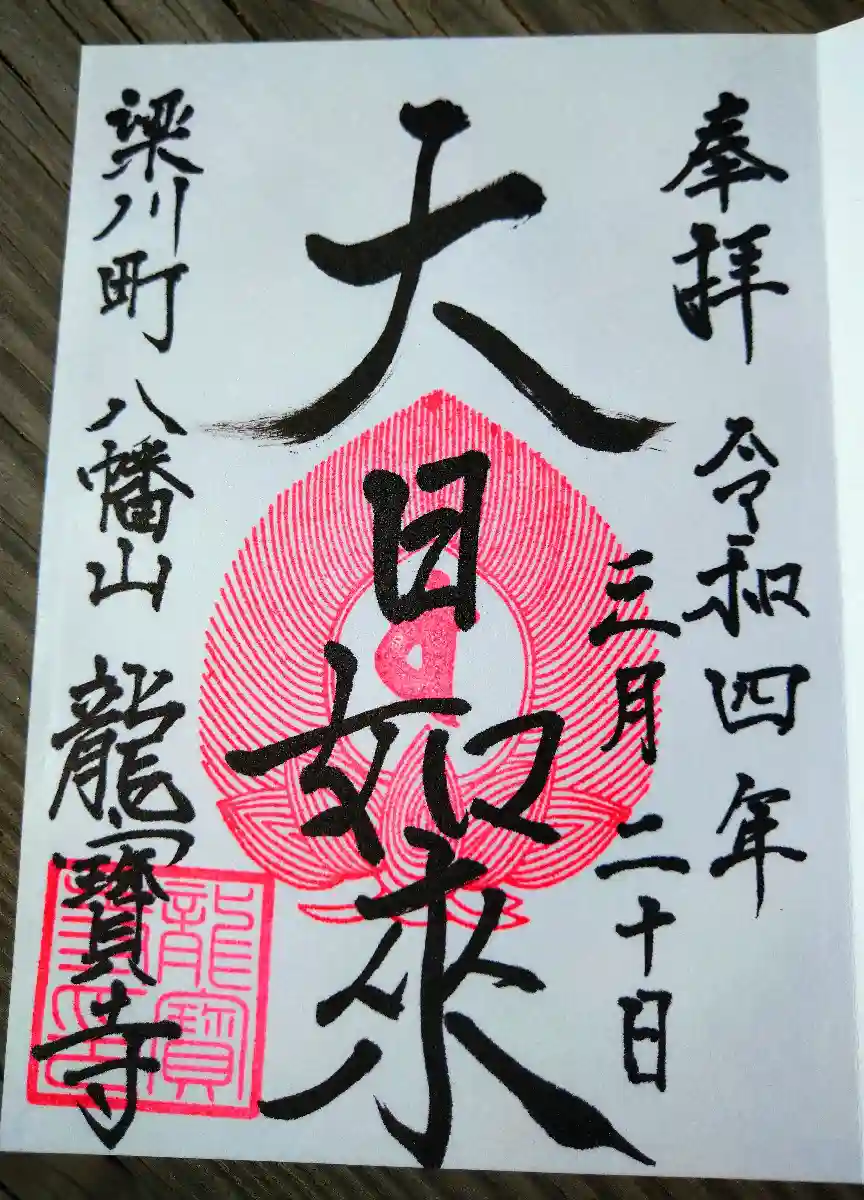 奉拝 令和四年
三月二十日
大日如來
梁川町 八幡山 龍寶寺
龍寶